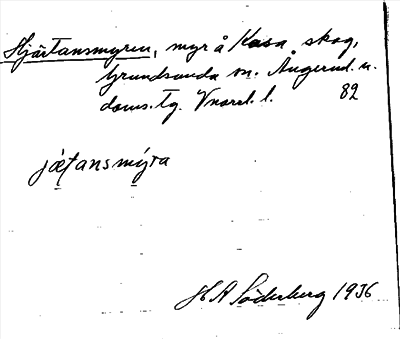 Hjärtansmyren, myr å Kasa skog,
Grundsunda sn. Ångerml. n.
doms. tg. Vnorrl. l. 82
jætansmýra
H A Söderberg 1936